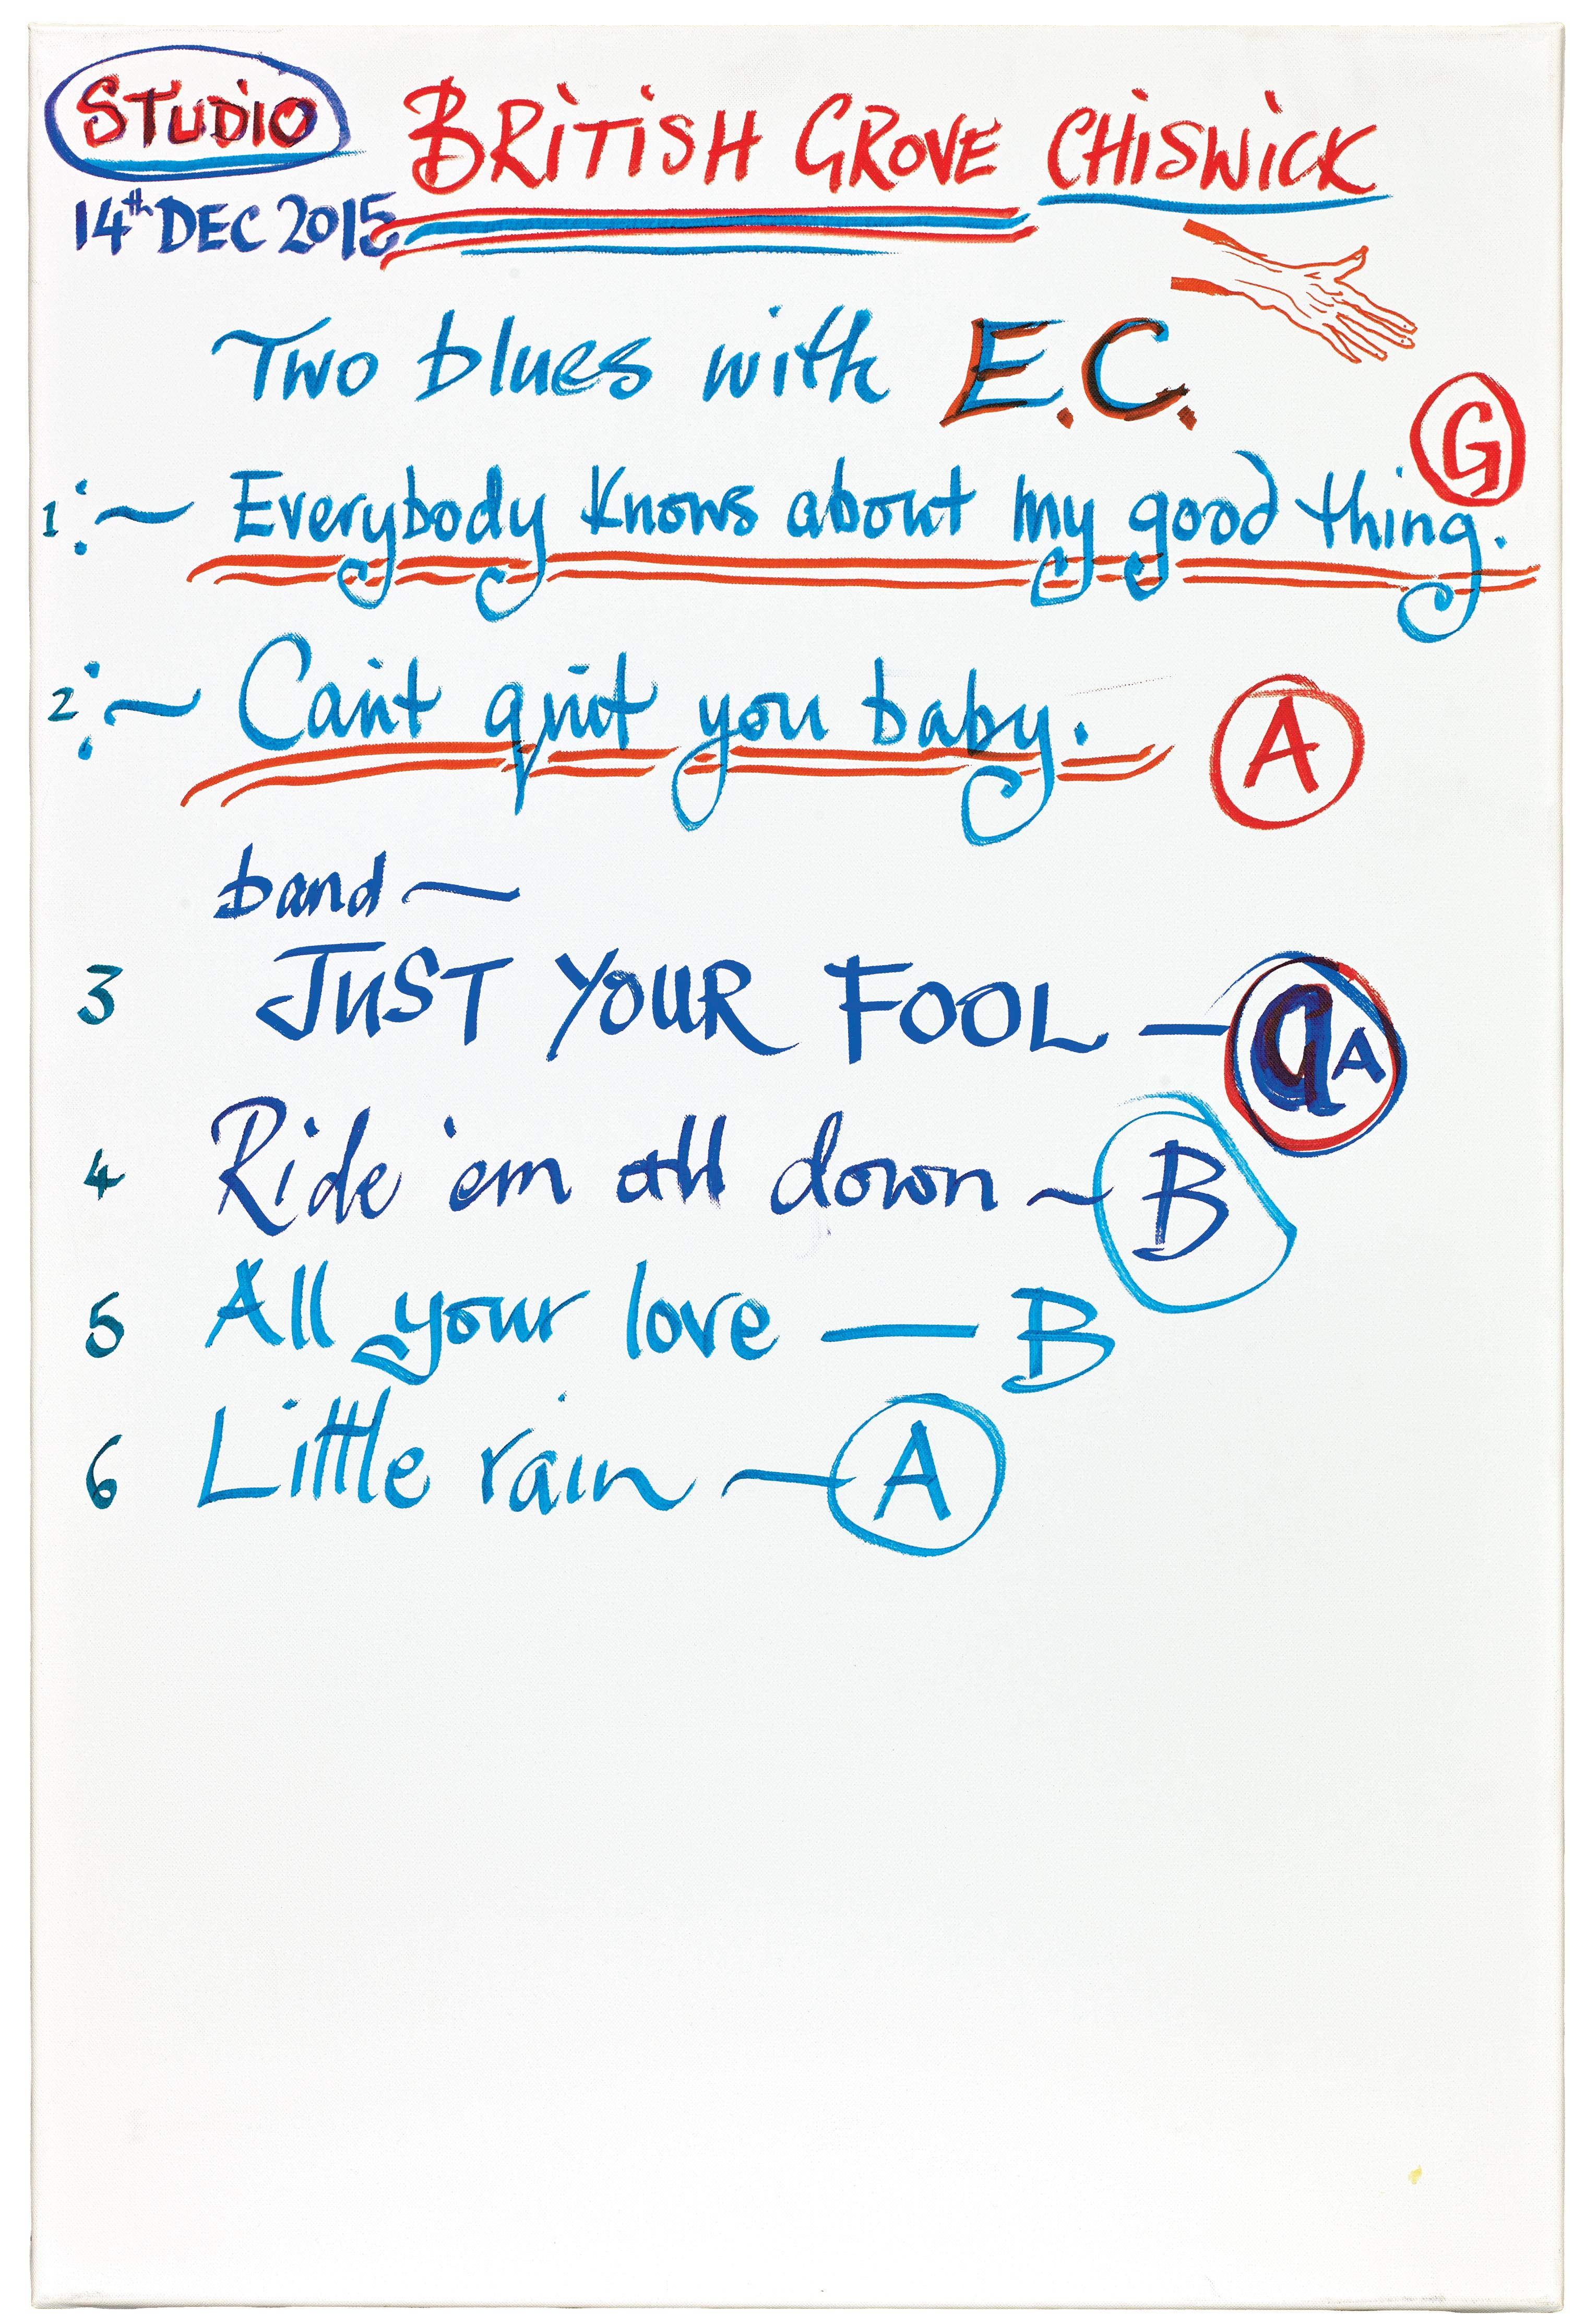 STUDIO BRITISH GROVE CHISWICK
14th DEC 2015
Two blues with E.C.
G
1:~ Everybody knows about my good thing.
2:~ Can't quit you baby. A
band ~
3 JUST YOUR FOOL — A
4 Ride 'em all down ~ B
5 All your love — B
6 Little rain — A